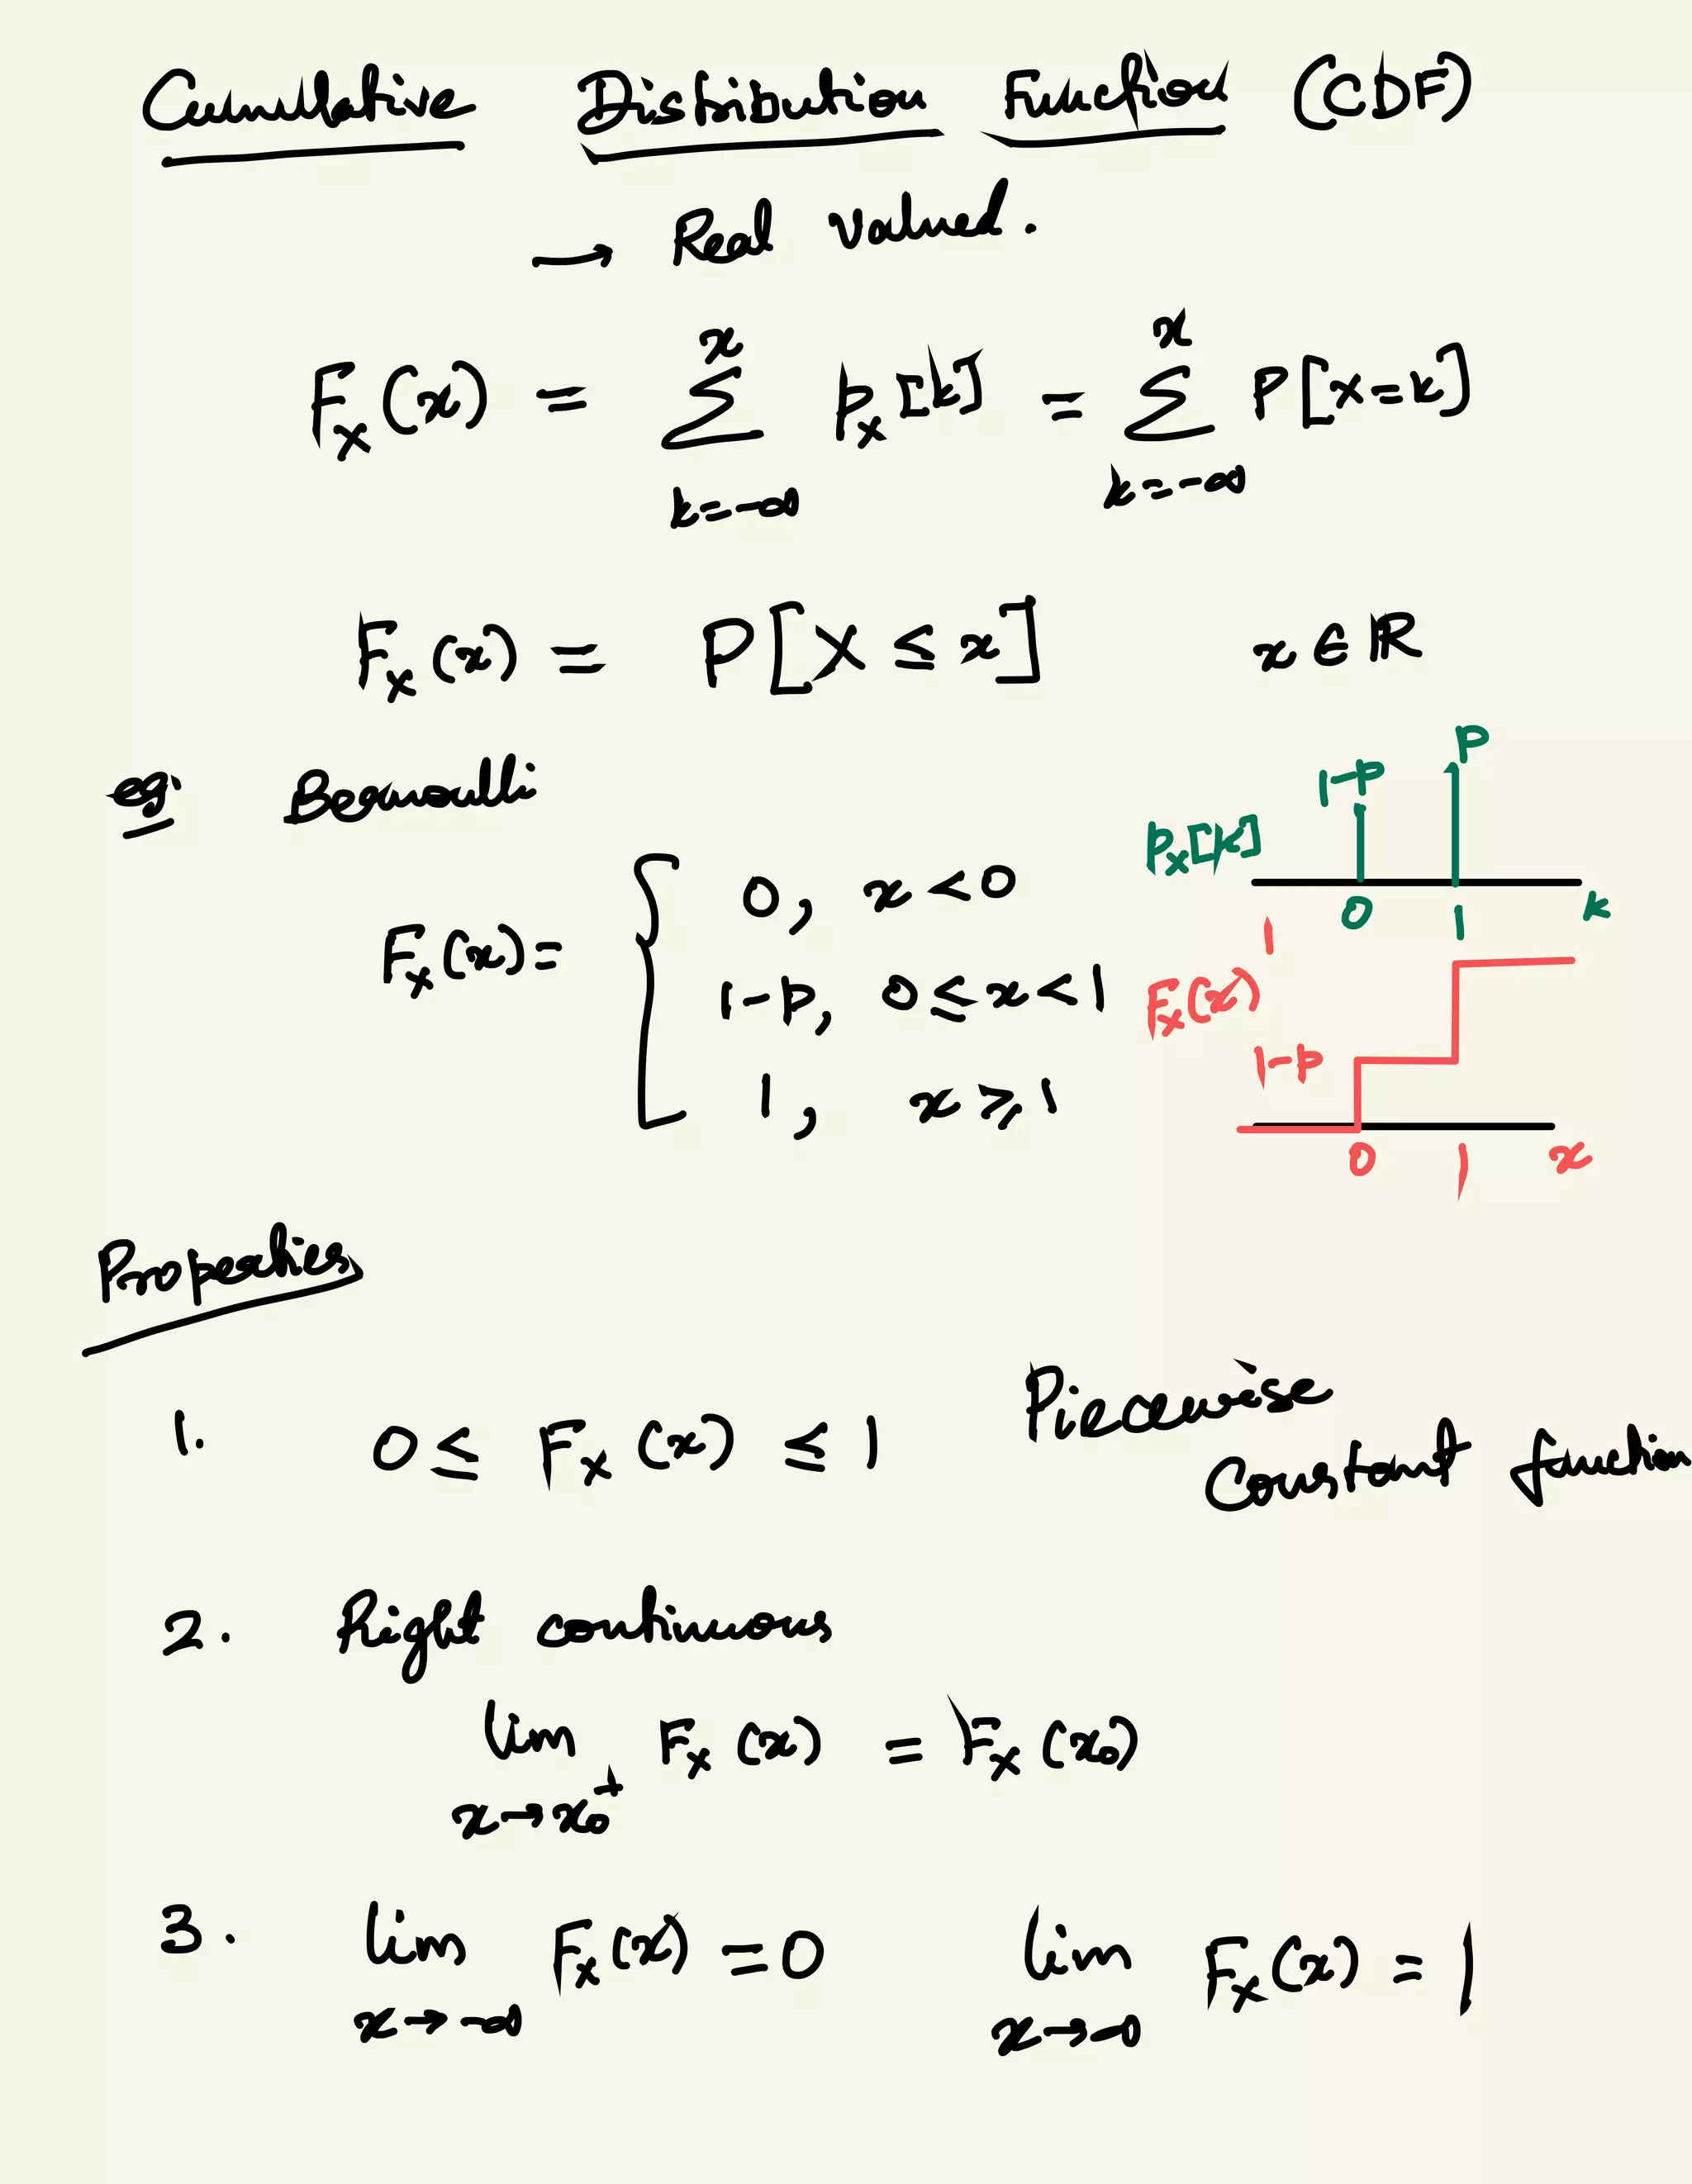 Cumulative Distribution Function (CDF)
→ Real valued.
F_X(x) = ∑_{k=-∞}^{x} p_X[k] = ∑_{k=-∞}^{x} P[X=k]
F_X(x) = P[X ≤ x] x ∈ ℝ
eg: Bernoulli
F_X(x) = { 0, x < 0
1-p, 0 ≤ x < 1
1, x ≥ 1
p
1-p
p_X[k]
0 1 k
1
F_X(x)
1-p
0 1 x
Properties
1. 0 ≤ F_X(x) ≤ 1 Piecewise
constant function
2. Right continuous
lim_{x→x_0^+} F_X(x) = F_X(x_0)
3. lim_{x→-∞} F_X(x) = 0 lim_{x→∞} F_X(x) = 1